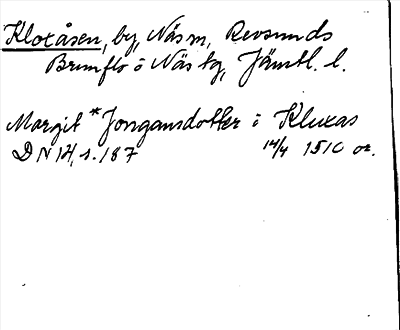 Klotåsen, by, Näs sn, Revsunds
Brunflo o Näs tg, Jämtl. l.
Margit *Jongansdotter i Kluxas
DN 14, s. 187 14/4 1510 or.